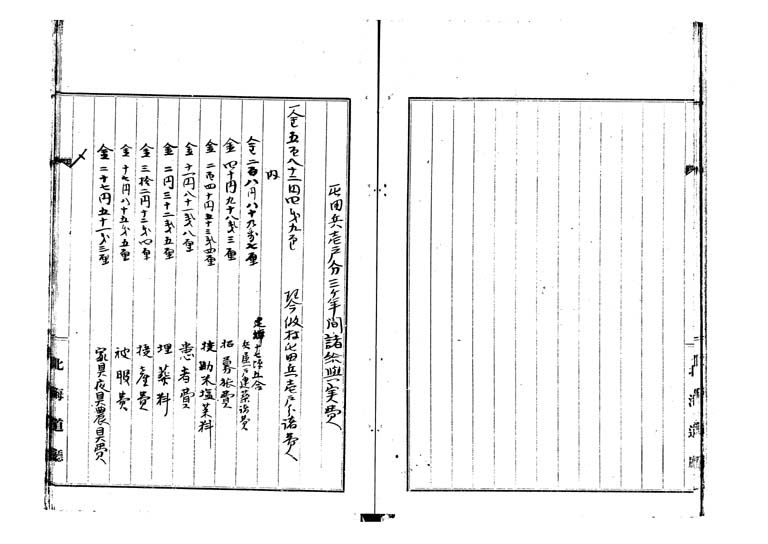 屯田兵壱戸分三ヶ年間諸給與実費
一金五百八十三円四銭九厘 現今
屯田兵壱戸分諸費
内
金二百八円八十九銭七厘 建坪十七坪五合 兵屋一戸建築諸費
金四十円九十八銭三厘 招募旅費
金二百四十円五十三銭四厘 扶助米塩菜料
金十一円八十一銭八厘 患者費
金二円三十二銭五厘 埋葬料
金三拾二円十二銭四厘 授産費
金十七円八十五銭五厘 被服費
金二十七円五十一銭三厘 家具夜具農具費
北海道廳
北海道廳